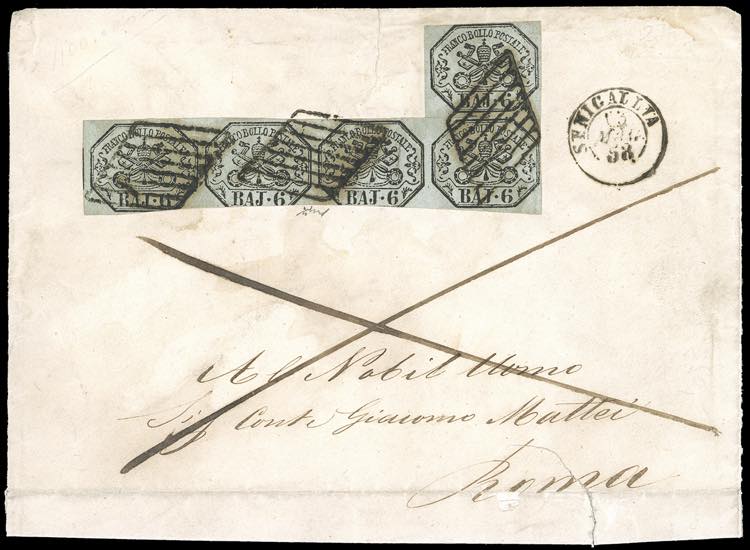 FRANCO BOLLO POSTALE
BAJ·6
FRANCO BOLLO POSTALE
BAJ·6
FRANCO BOLLO POSTALE
BAJ·6
FRANCO BOLLO POSTALE
BAJ·6
FRANCO BOLLO POSTALE
BAJ·6
SENIGALLIA
58
Al Nobil Uomo
Sig Conte Giacomo Mattei
Roma